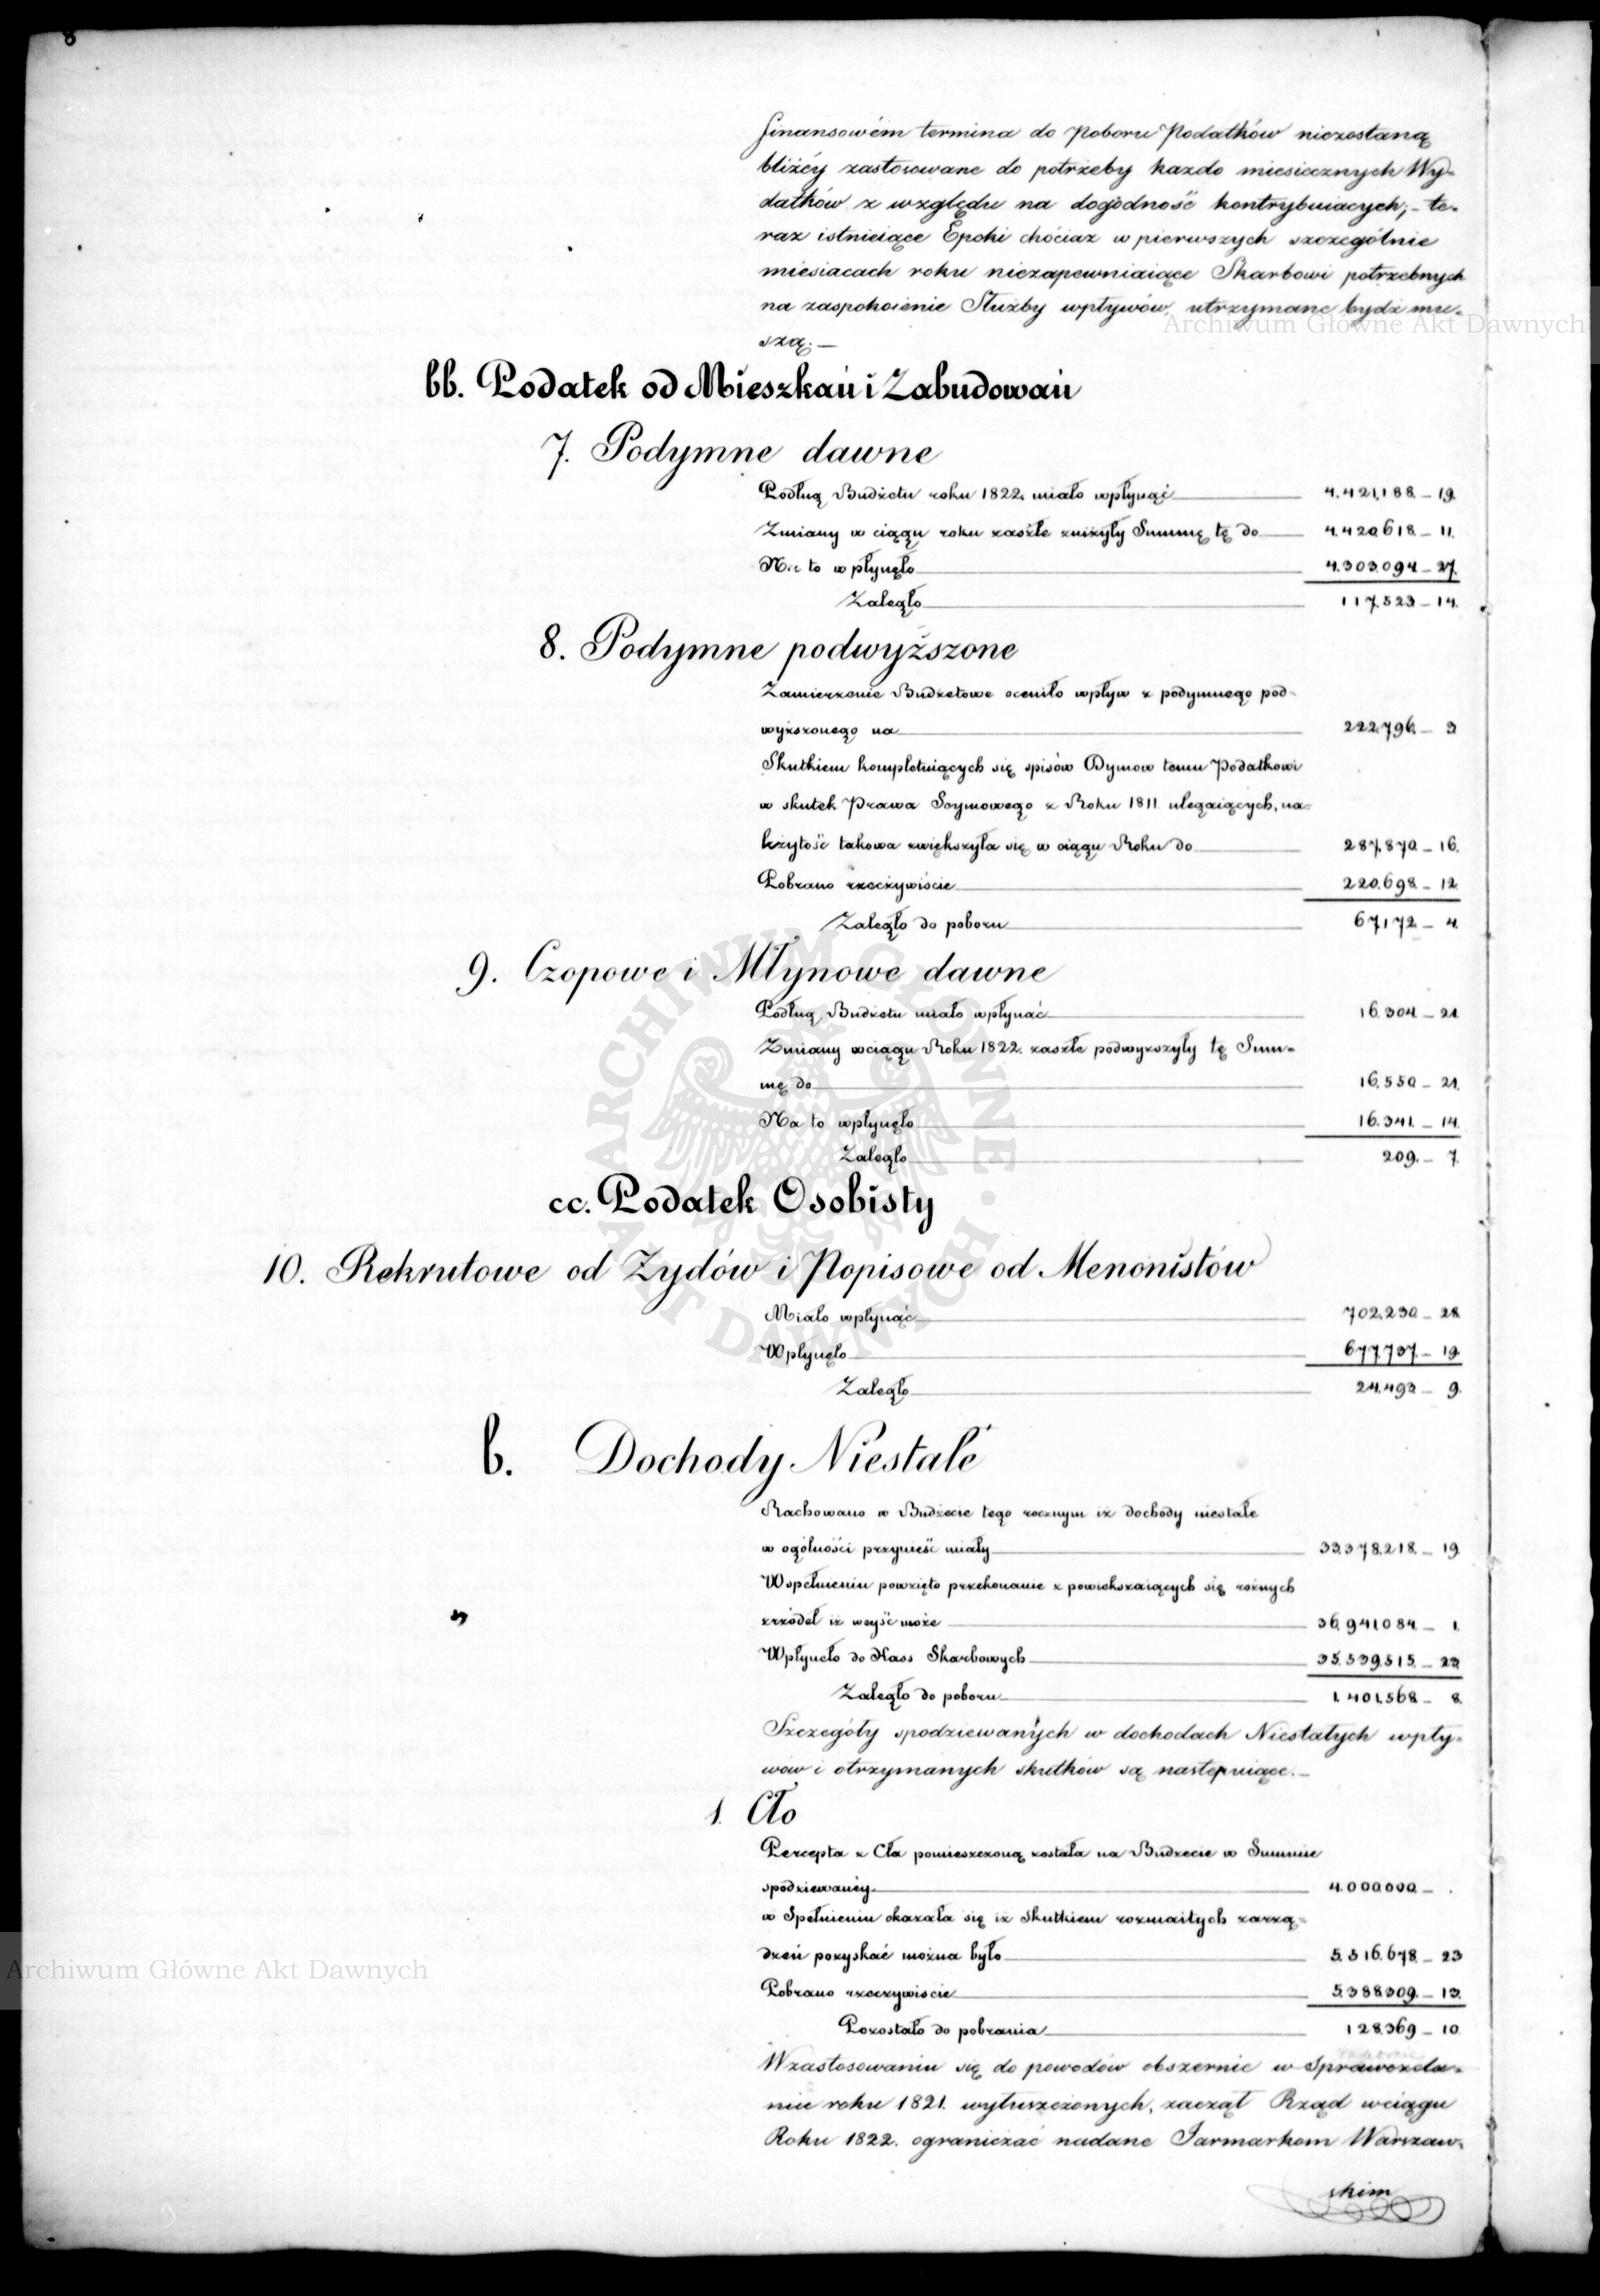 8
finansowém termina do poboru Podatków niezostaną
bliżéy zastosowane do potrzeby kazdo miesiecznych Wy-
datków z względu na dogodność kontrybuiacych; - te-
raz istnieiące Epoki chóciaz w pierwszych szczególnie
miesiacach roku niezapewniaiące Skarbowi potrzebnych
na zaspokoienie Służby wpływów, utrzymane bydz mu-
szą. —
bb. Podatek od Mieszkań i Zabudowań
7. Podymne dawne
Podług Budżetu roku 1822. miało wpłynąć 4.421.188. – 19.
Zmiany w ciągu roku zaszłe zniżyły Summę tę do 4.420.618. – 11.
Na to wpłynęło 4.303.094 – 27.
Zaległo 117.523 – 14.
8. Podymne podwyższone
Zamierzenie Budżetowe oceniło wpływ z podymnego pod-
wyższonego na 222.796. – 3
Skutkiem kompletuiących się spisów Dymow temu Podatkowi
w skutek Prawa Seymowego z Roku 1811 ulegaiących, na-
leżytość takowa zwiększyła się w ciągu Roku do 287.870. – 16.
Pobrano rzeczywiście 220.698. – 12
Zaległo do poboru 67.172 – 4.
9. Czopowe i Młynowe dawne
Podług Budżetu miało wpłynać 16.304. – 21.
Zmiany wciągu Roku 1822. zaszłe podwyższyły tę Sum-
mę do 16.550 – 21.
Na to wpłynęło 16.341. – 14.
Zaległo 209. – 7.
cc. Podatek Osobisty
10. Rekrutowe od Zydów i Popisowe od Menonistów
Miało wpłynąć 702.230 – 28.
Wpłynęło 677.737. – 19.
Zaległo 24.493 – 9.
b. Dochody Niestałe
Rachowano w Budżecie tego rocznym iż dochody niestałe
w ogólności przynieść miały 33.378.218. – 19.
Wspełnieniu powzięto przekonanie z powiekszaiących się rożnych
zrzódeł iż weyść może 36.941.084. – 1.
Wpłyneło do Kass Skarbowych 35.539.515. – 23.
Zaległo do poboru 1.401.568 – 8.
Szczegóły spodziewanych w dochodach Niestałych wpły-
wów i otrzymanych skutków są następuiące. –
1. Cło
Percepta z Cła pomieszczoną została na Budżecie w Summie
spodziewanéy 4.000.000 – .
w Spełnieniu okazała się iż skutkiem rozmaitych zarzą-
dzeń pozyskać można było 5.516.678. – 23
Pobrano rzeczywiscie 5.388.309. – 13.
Pozostało do pobrania 128.369 – 10.
Wzastosowaniu się do powodów obszernie w Sprawozda-
niu roku 1821. wyłuszczonych, zaczął Rząd wciągu
Roku 1822. ograniczać nadane Jarmarkom Warszaw-
skim
Archiwum Główne Akt Dawnych
ARCHIWUM GŁÓWNE AKT DAWNYCH
Archiwum Główne Akt Dawnych